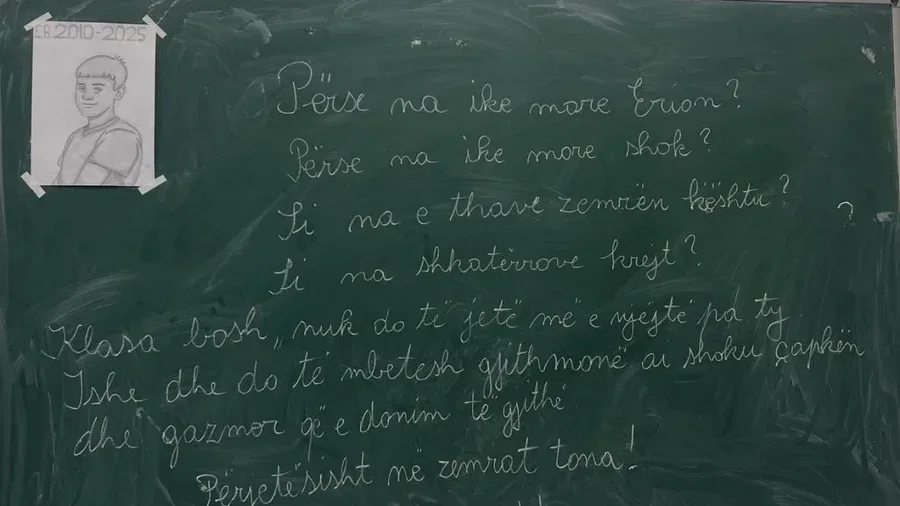 ER 2010-2025
Përse na ike more Erion?
Përse na ike more shok?
Si na e thave zemrën kështu?
?
Si na shkatërrove krejt?
Klasa bosh,, nuk do të jetë më e njëjtë pa ty
Ishe dhe do të mbetesh gjithmonë ai shoku çapkën
dhe gazmor që e donim të gjithë
Përjetësisht në zemrat tona!